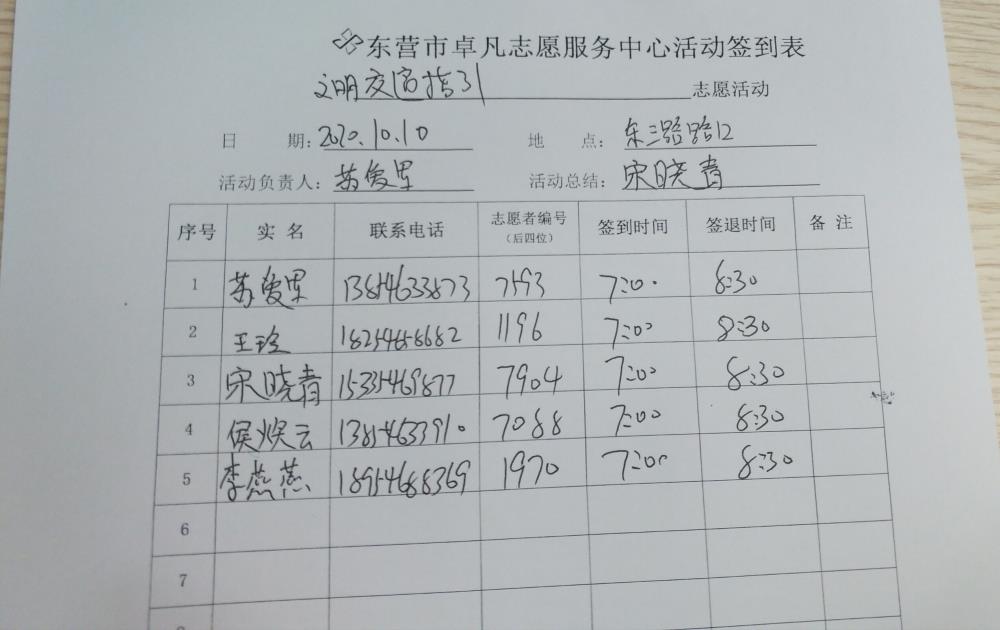 东营市卓凡志愿服务中心活动签到表
文明交通指引 志愿活动
日 期: 2020.10.10 地 点: 东三路路口
活动负责人: 苏爱军 活动总结: 宋晓青
序号 实名 联系电话 志愿者编号（后四位） 签到时间 签退时间 备注
1 苏爱军 13854633873 7593 7:00 8:30
2 王玲 18254658682 1196 7:00 8:30
3 宋晓青 15335469877 7904 7:00 8:30
4 侯焕云 13854633910 7088 7:00 8:30
5 李燕燕 18954688369 1970 7:00 8:30
6
7